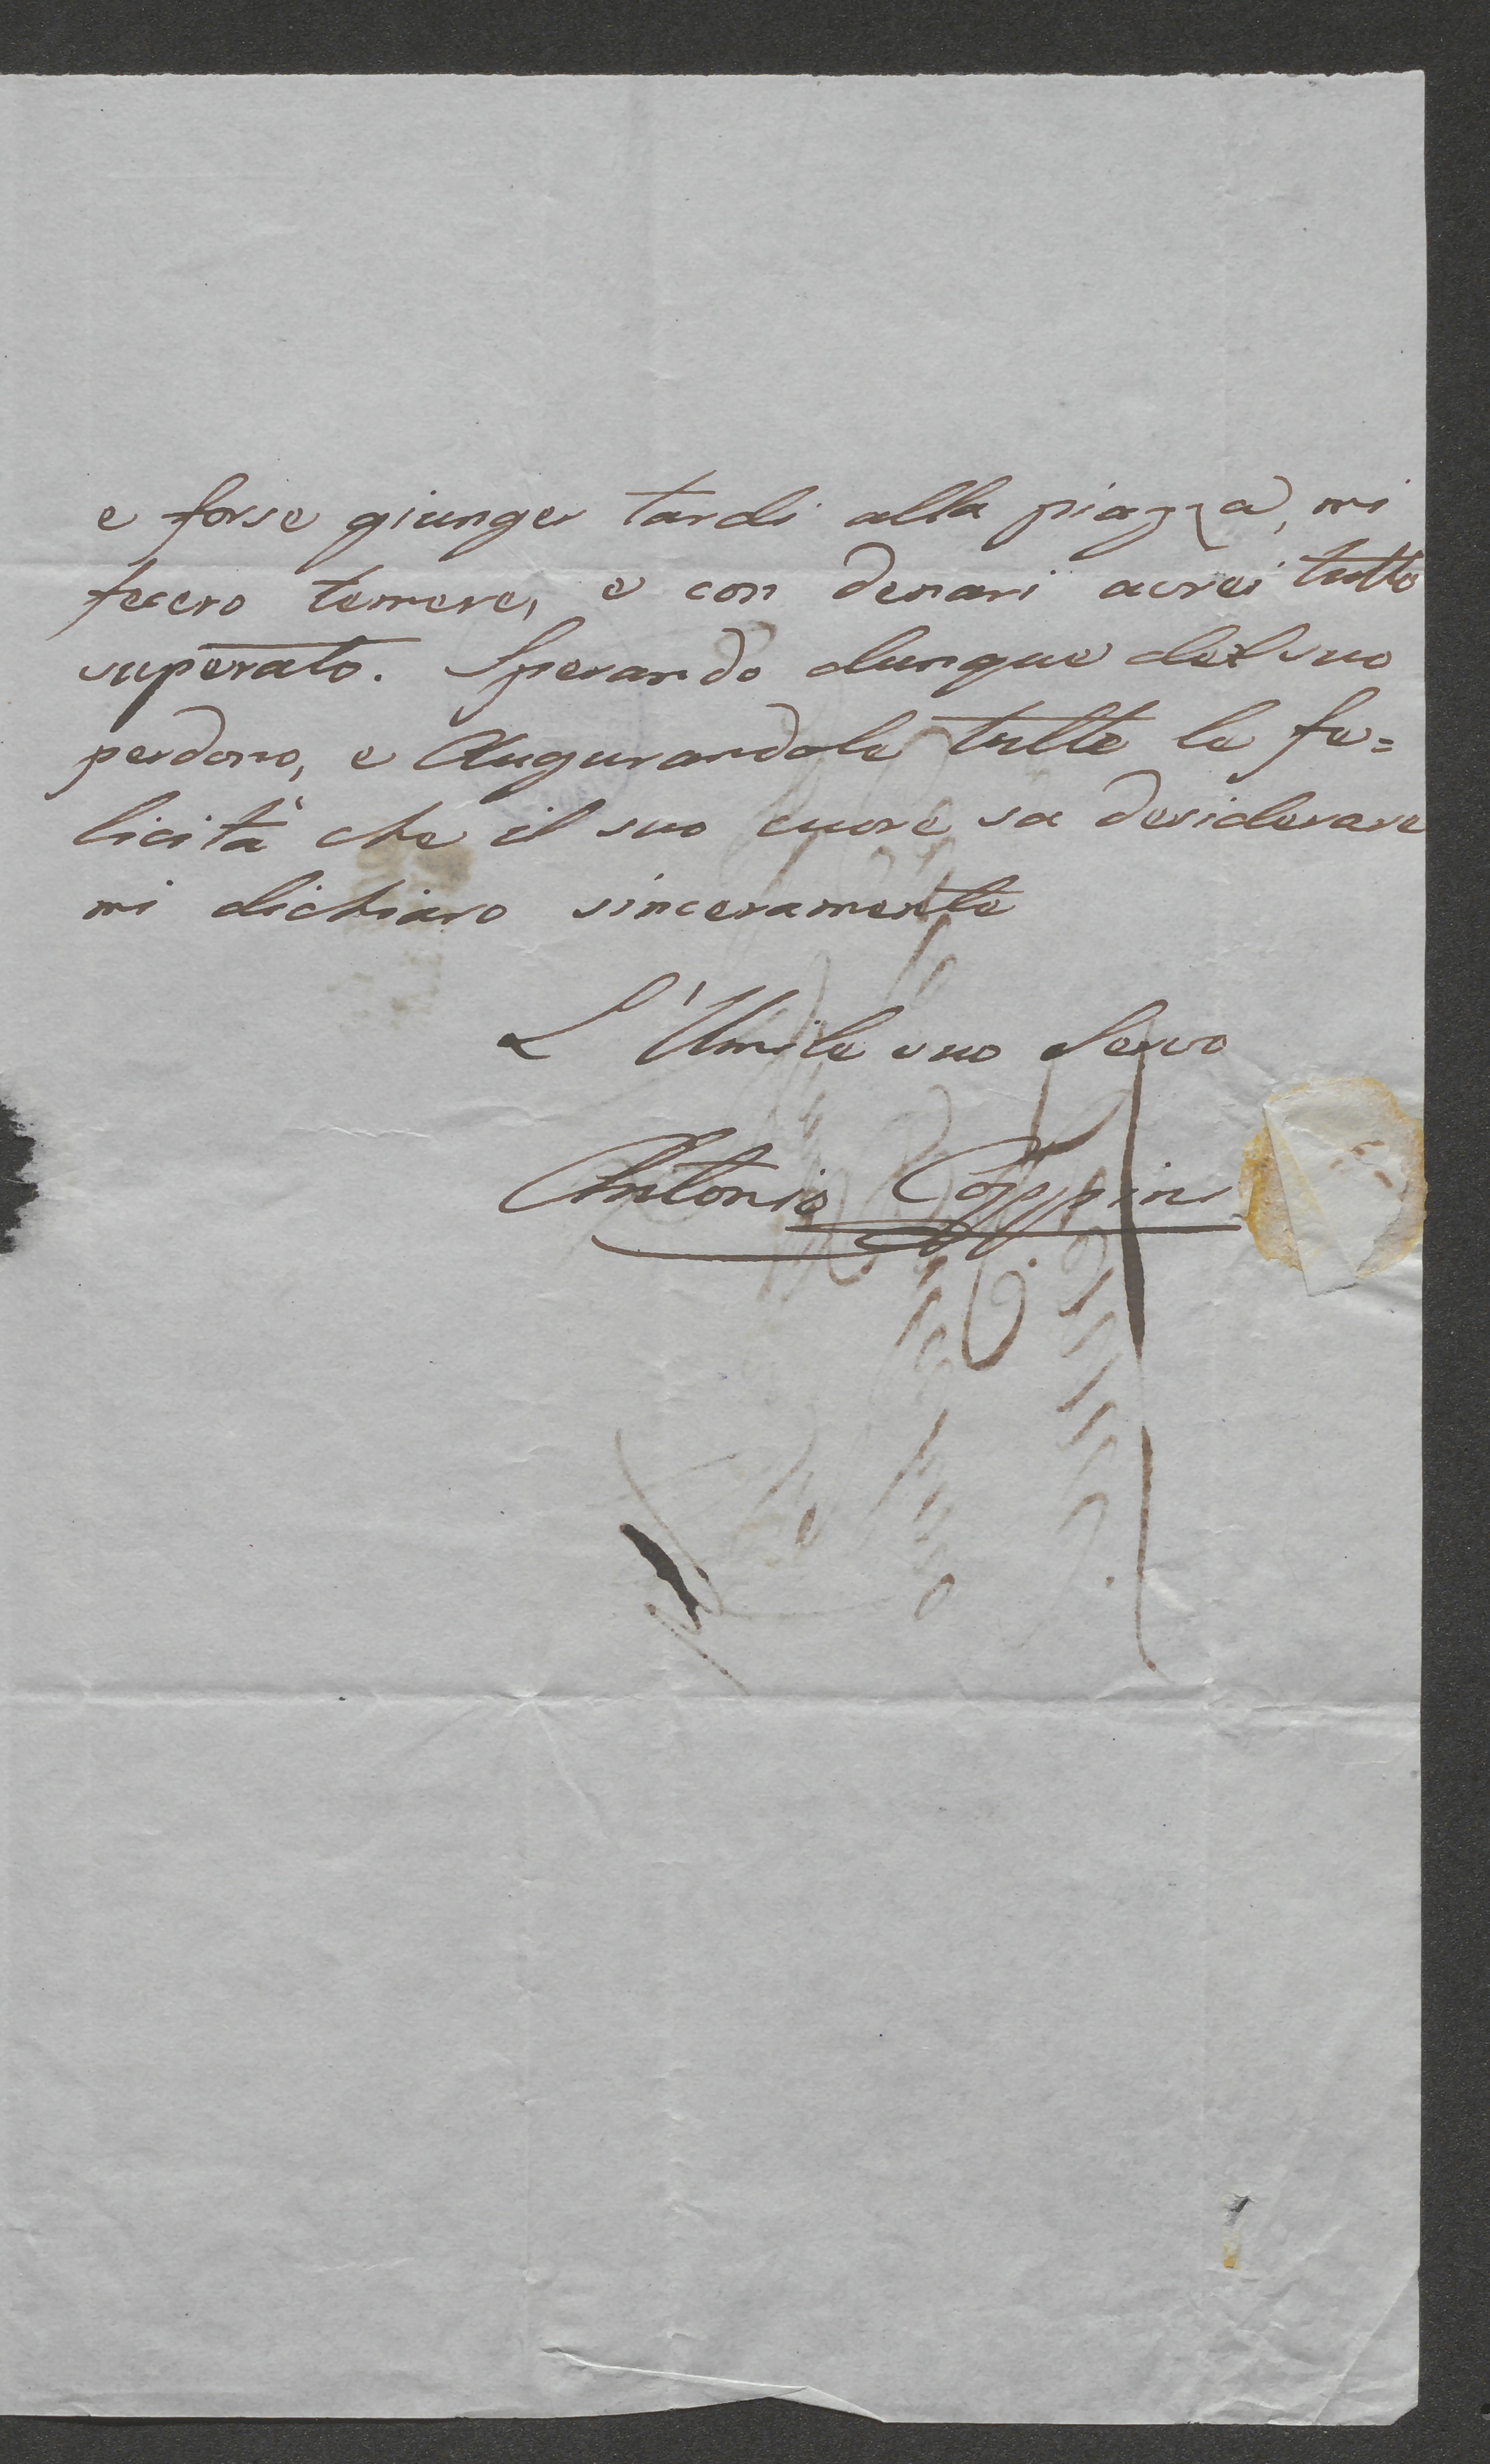 e forse giunger tardi alla piazza, mi
fecero temere, e con denari avrei tutto
superato. Sperando dunque del suo
perdono, e Augurandole tutte le fe=
licità che il suo cuore sa desiderare
mi dichiaro sinceramente
L'Umile suo Servo
Antonio Coppini